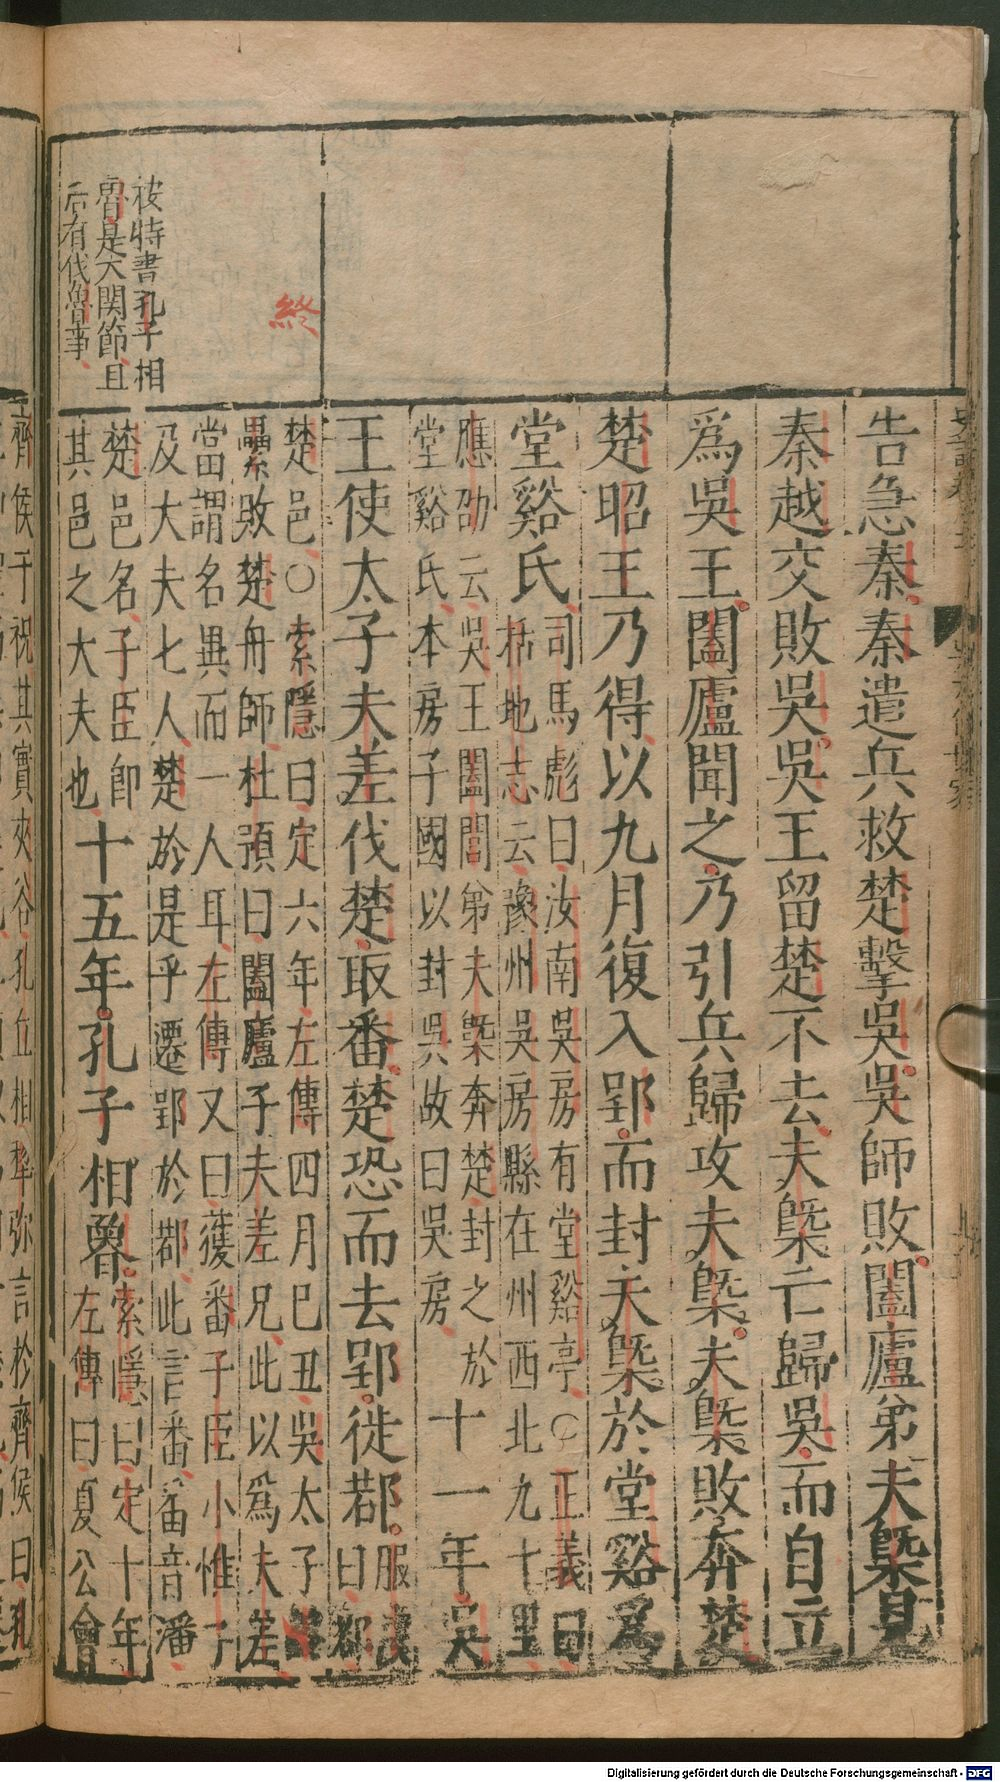 告急秦秦遣兵救楚擊吳吳師敗闔廬弟夫槩見
秦越交敗吳吳王留楚不去夫槩亡歸吳而自立
爲吳王闔廬聞之乃引兵歸攻夫槩夫槩敗奔楚
楚昭王乃得以九月復入郢而封夫槩於堂谿爲
堂谿氏
司馬彪曰汝南吳房有堂谿亭〇正義曰
括地志云豫州吳房縣在州西北九十里
應劭云吳王闔閭弟夫槩奔楚封之於
堂谿氏本房子國以封吳故曰吳房
十一年吳
王使太子夫差伐楚取番楚恐而去郢徙鄀
服虔
曰鄀
楚邑〇索隱曰定六年左傳四月巳丑吳太子
終纍敗楚舟師杜預曰闔廬子夫差兄此以爲夫差
當謂名異而一人耳左傳又曰獲番子臣小惟子
及大夫七人楚於是乎遷郢於鄀此言番番音潘
楚邑名子臣卽
其邑之大夫也
十五年孔子相魯
索隱曰定十年
左傳曰夏公會
終
按特書孔子相
魯是大関節且
后有伐魯事
齊侯于祝其實夾谷孔丘相犂弥言於齊侯曰孔
Digitalisierung gefördert durch die Deutsche Forschungsgemeinschaft - DFG